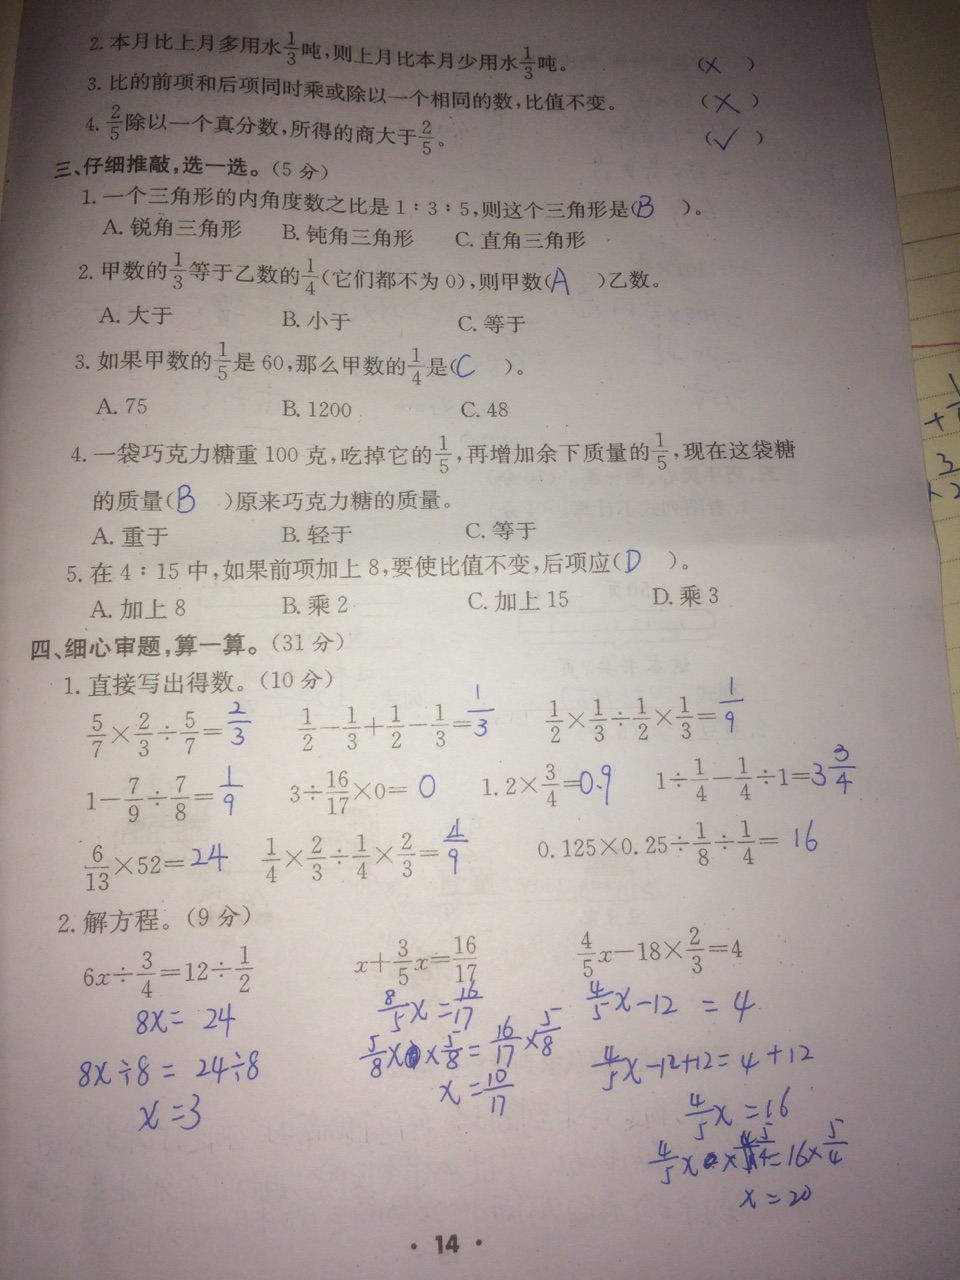 2. 本月比上月多用水1/3吨,则上月比本月少用水1/3吨。 (×)
3. 比的前项和后项同时乘或除以一个相同的数,比值不变。 (×)
4. 2/5除以一个真分数,所得的商大于2/5。 (√)
三、仔细推敲,选一选。(5 分)
1. 一个三角形的内角度数之比是 1∶3∶5,则这个三角形是(B )。
A. 锐角三角形 B. 钝角三角形 C. 直角三角形
2. 甲数的1/3等于乙数的1/4(它们都不为 0),则甲数(A )乙数。
A. 大于 B. 小于 C. 等于
3. 如果甲数的1/5是 60,那么甲数的1/4是(C )。
A. 75 B. 1200 C. 48
4. 一袋巧克力糖重 100 克,吃掉它的1/5,再增加余下质量的1/5,现在这袋糖
的质量(B )原来巧克力糖的质量。
A. 重于 B. 轻于 C. 等于
5. 在 4∶15 中,如果前项加上 8,要使比值不变,后项应(D )。
A. 加上 8 B. 乘 2 C. 加上 15 D. 乘 3
四、细心审题,算一算。(31 分)
1. 直接写出得数。(10 分)
5/7×2/3÷5/7=2/3 1/2−1/3+1/2−1/3=1/3 1/2×1/3÷1/2×1/3=1/9
1−7/9÷7/8=1/9 3÷16/17×0=0 1.2×3/4=0.9 1÷1/4−1/4÷1=3 3/4
6/13×52=24 1/4×2/3÷1/4×2/3=4/9 0.125×0.25÷1/8÷1/4=16
2. 解方程。(9 分)
6x÷3/4=12÷1/2 x+3/5x=16/17 4/5x−18×2/3=4
8x=24 8/5x=16/17 4/5x−12=4
8x÷8=24÷8 5/8x×5/8=16/17×5/8 4/5x−12+12=4+12
x=3 x=10/17 4/5x=16
4/5x×5/4=16×5/4
x=20
· 14 ·